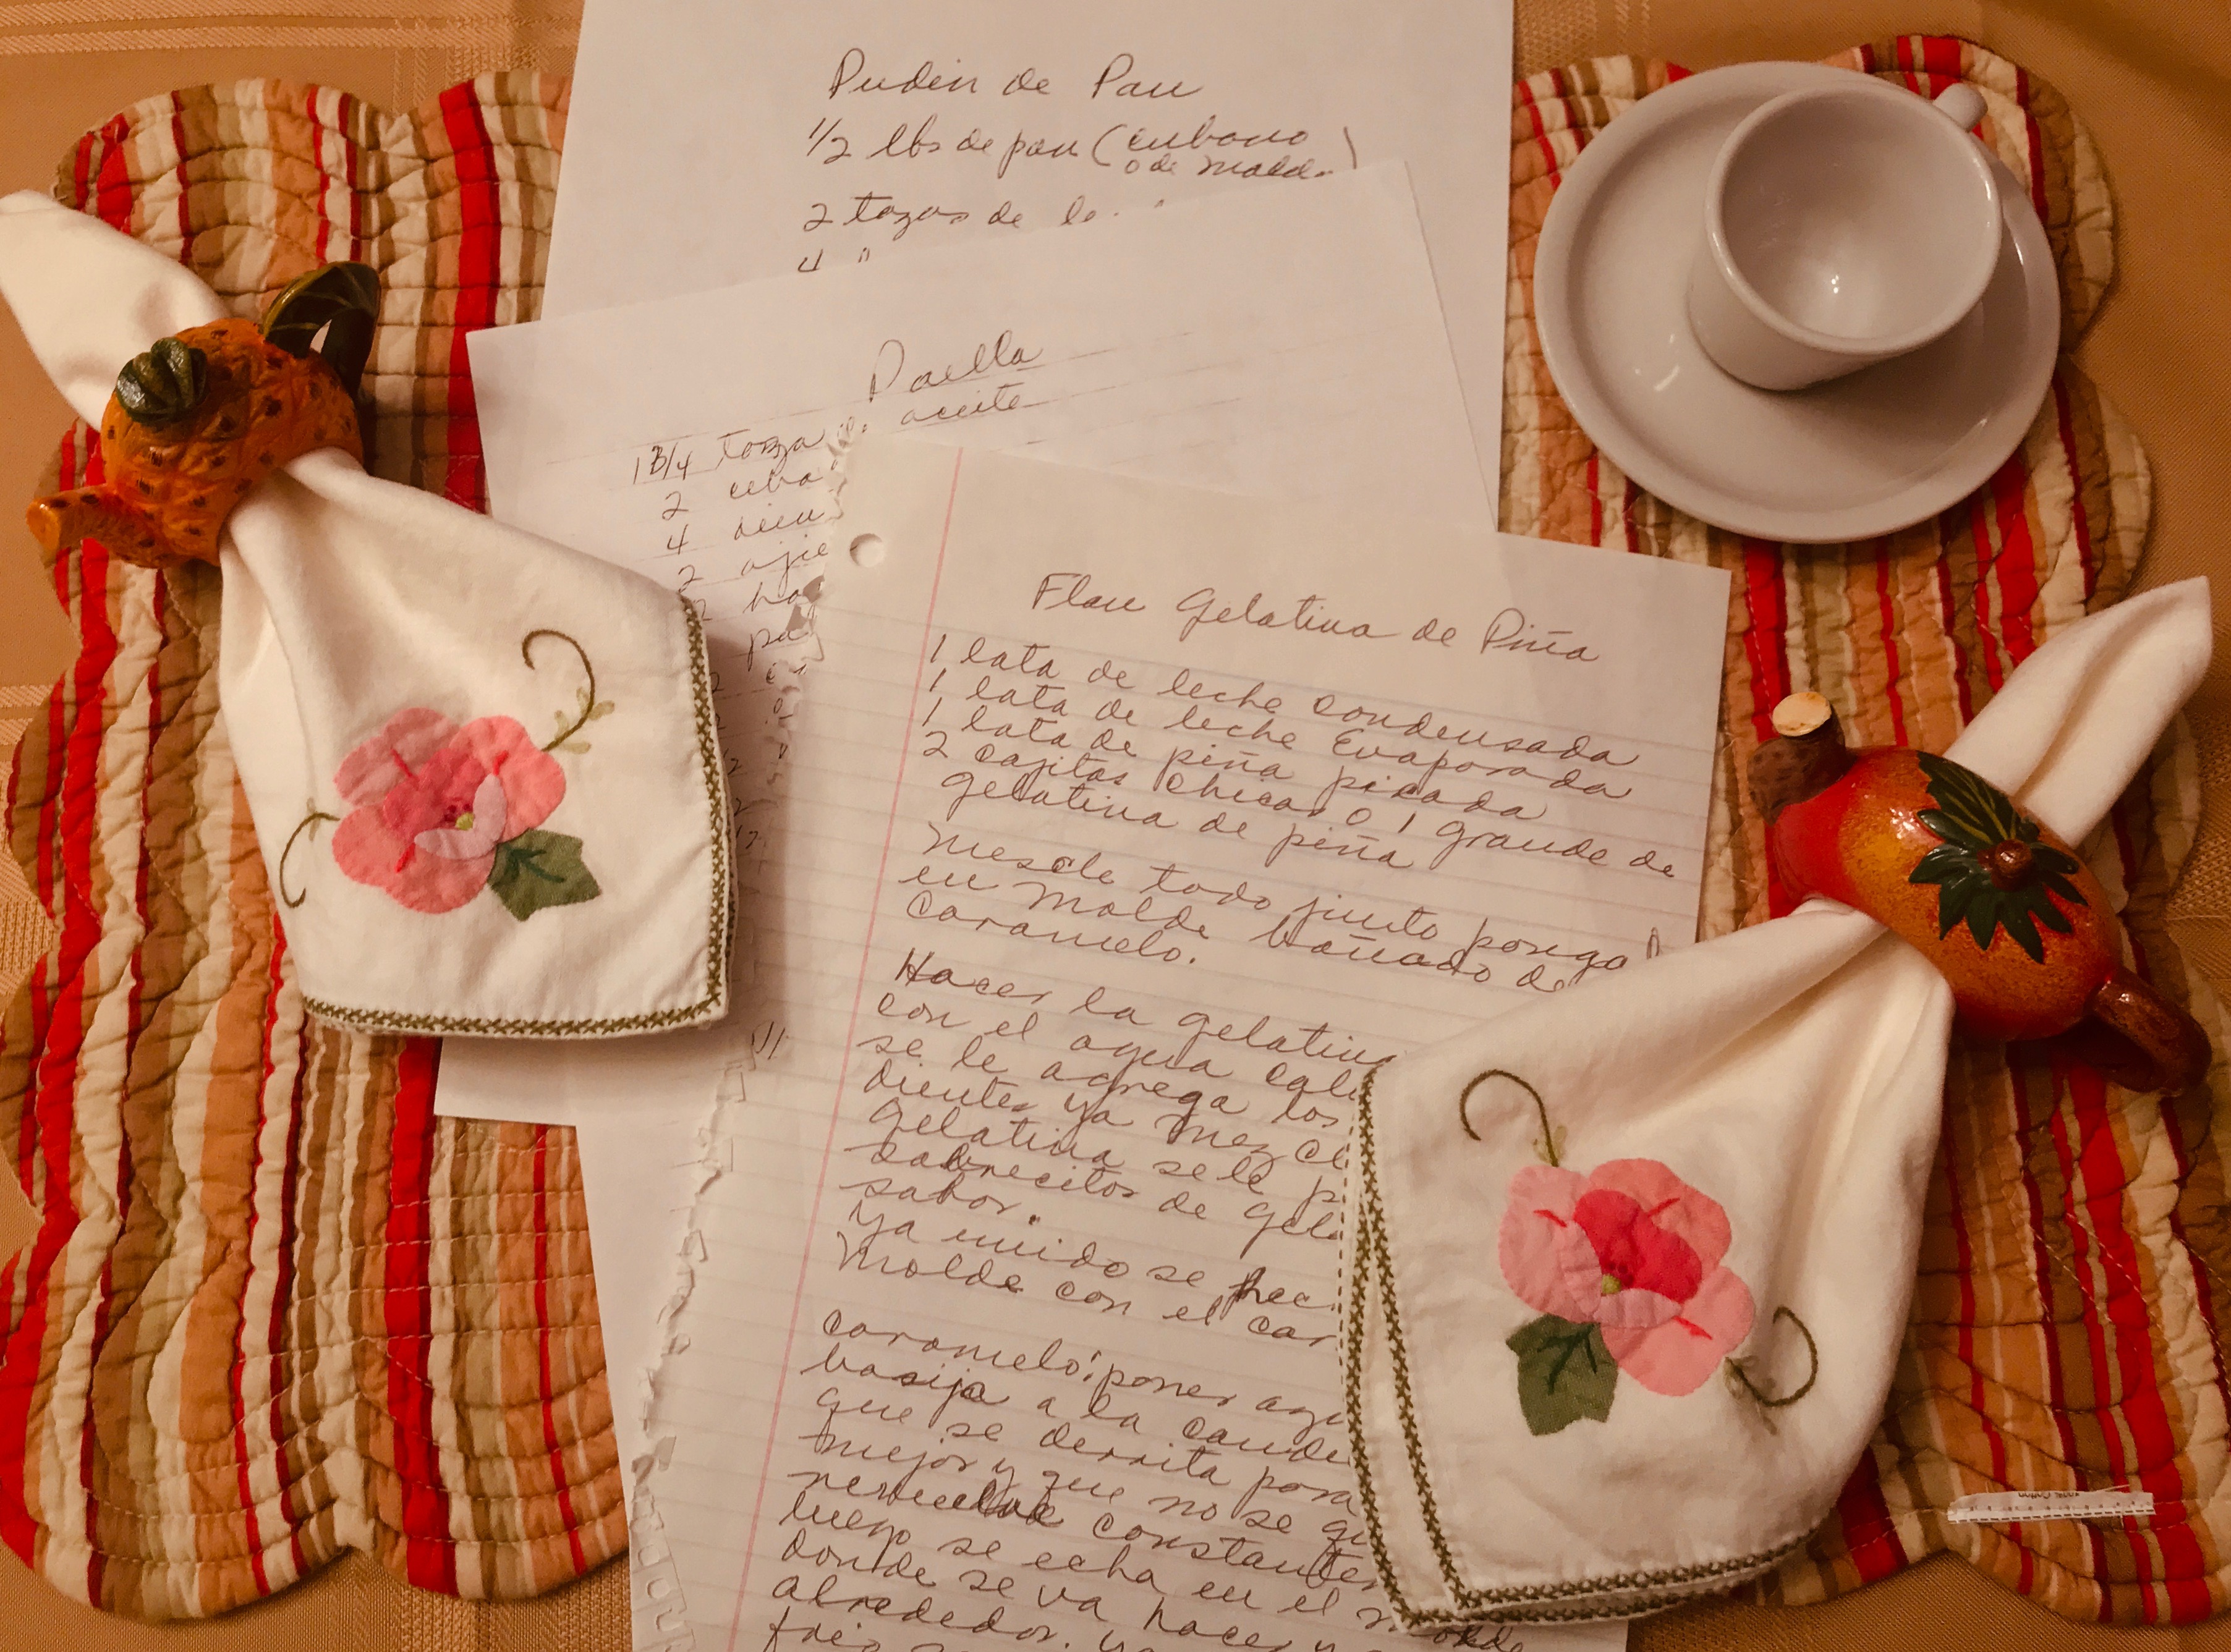 Pudin de Pan
1/2 lbs de pan (cubano
o de molde)
2 tazas de le
4 "
Paella
1 3/4 toza de aceite
2 ceba
4 dien
2 ajie
2 ho
pu
Flan Gelatina de Piña
1 lata de leche condensada
1 lata de leche Evaporada
1 lata de piña picada
2 cajitas chicas o 1 grande de
gelatina de piña
Mescle todo junto ponga
en molde bañado de
caramelo.
Hacer la gelatina
con el agua cali
se le agrega los
dientes ya mezcl
gelatina se le p
sabrecitos de gela
sabor.
Ya unido se hec
molde con el car
caramelo: poner azu
basija a la cande
que se derrita para
mejor y que no se qu
constante
luego se echa en el molde
donde se va hacer y
alrededor. ya